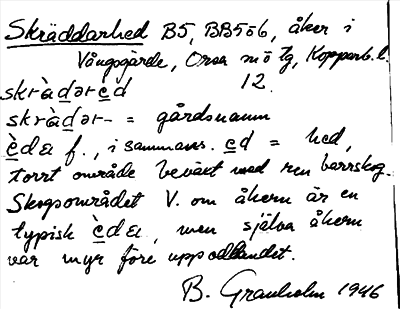 Skräddarhed B5, BB5ö6, åker i
Vångsgärde, Orsa sn ö Tg, Kopparb. l.
skràdəred 12.
skràdər- = gårdsnamn
èda f., i sammans. ed = hed,
torrt område beväxt med ren barrskog.
Skogsområdet V. om åkern är en
typisk èda, men själva åkern
var myr före uppodlandet.
B. Granholm 1946